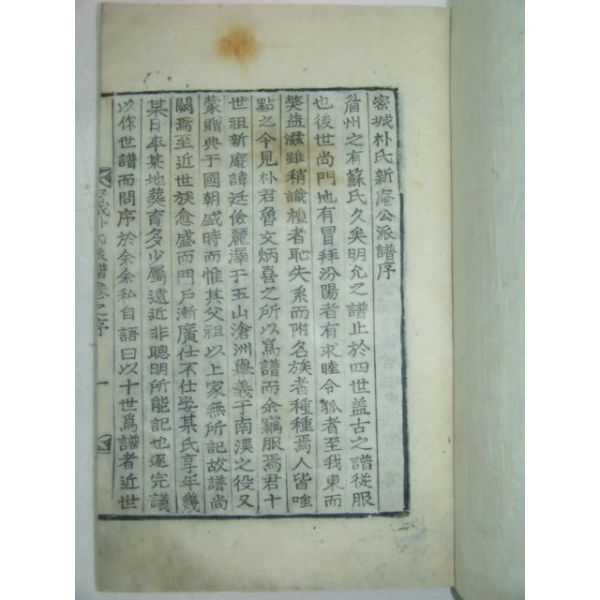 密城朴氏新庵公派譜序
眉州之有蘇氏久矣明允之譜止於四世盖古之譜從服
也後世尚門地有冒拜汾陽者有求睦令狐者至我東而
獘益滋雖稍識禮者恥失系而附名族者種種焉人皆唯
點之今見朴君魯文炳喜之所以爲譜而余竊服焉君十
世祖新庵諱廷儉麗澤于五山滄洲與義于南漢之役又
蒙贈典于國朝盛時而惟其父祖以上家無所記故譜尚
闕焉至近世族愈盛而門戶漸廣仕不仕娶某氏享年幾
某日卒某地葬育多少屬遠近非聰明所能記也遂完議
以作世譜而問序於余余私自語曰以十世爲譜者近世
城朴氏派譜卷之序
一